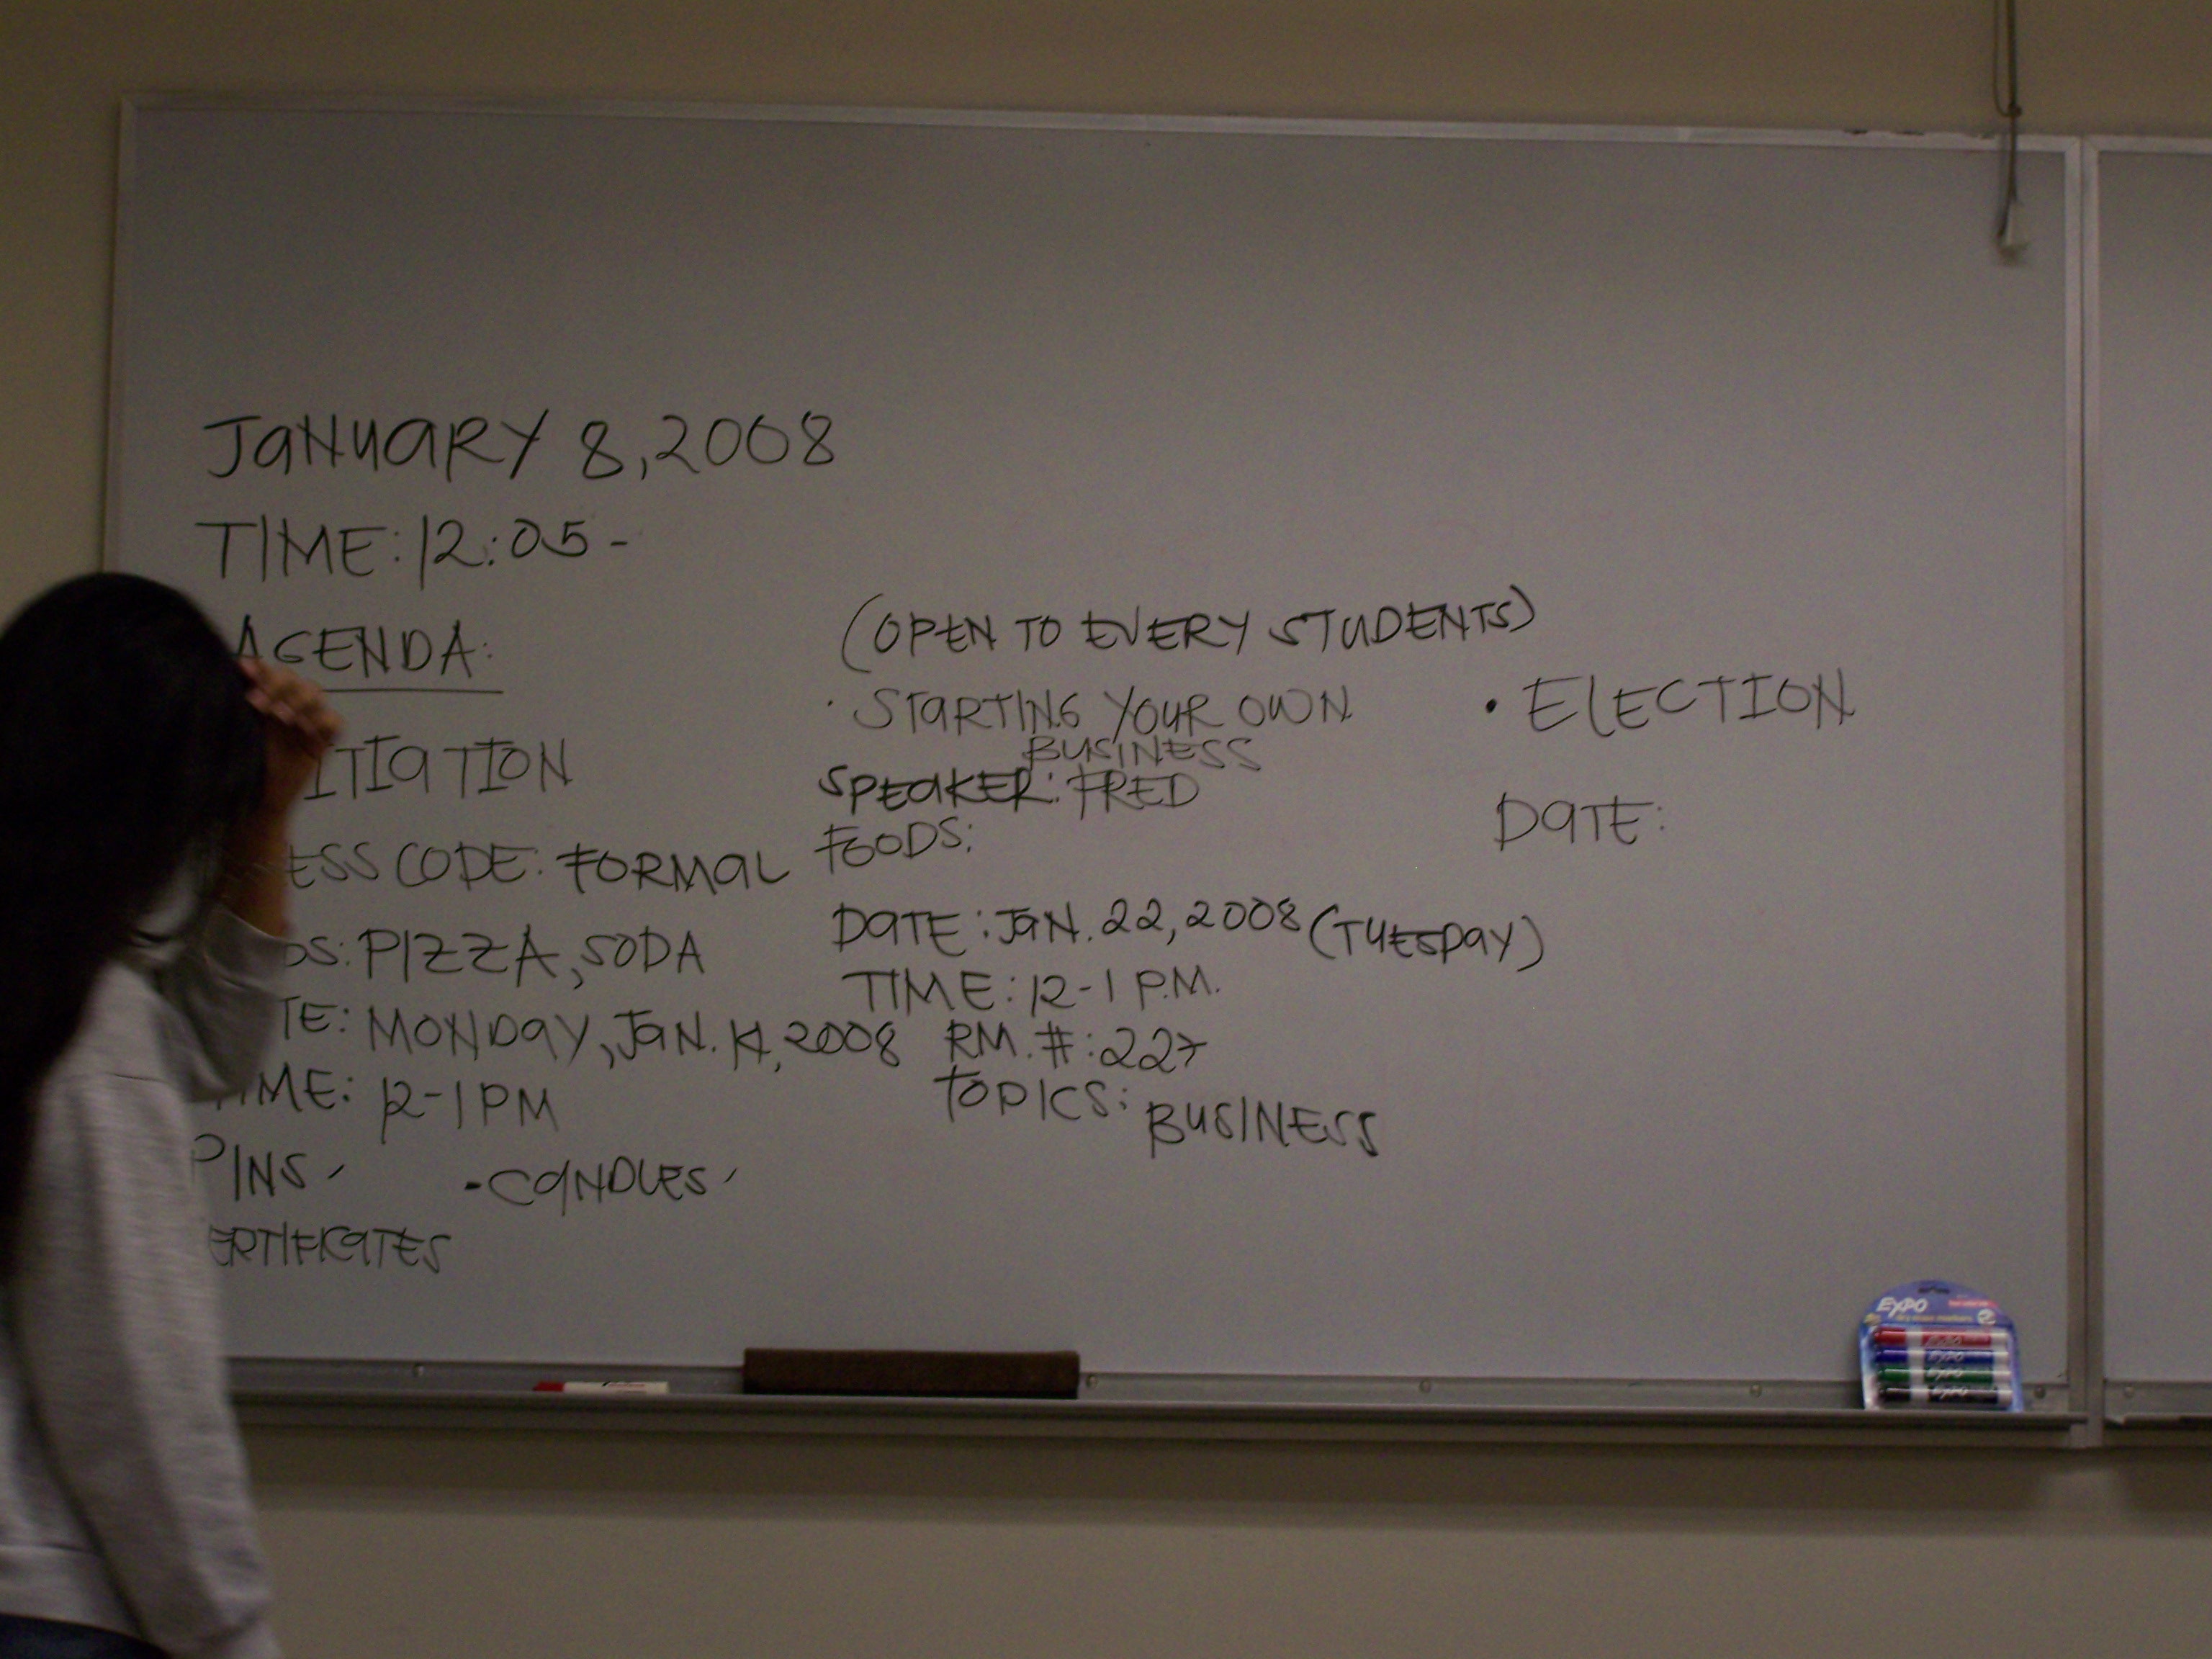 JANUARY 8, 2008
TIME: 12:05 -
AGENDA:
ITIATION
ESS CODE: FORMAL
DS: PIZZA, SODA
TE: MONDAY, JAN. 14, 2008
TIME: 12-1 PM
PINS
- CANDLES
ERTIFICATES
(OPEN TO EVERY STUDENTS)
· STARTING YOUR OWN
BUSINESS
SPEAKER: FRED
FOODS:
DATE: JAN. 22, 2008 (TUESDAY)
TIME: 12-1 P.M.
RM. #: 227
TOPICS: BUSINESS
• ELECTION
DATE:
EXPO
EXPO
EXPO
EXPO